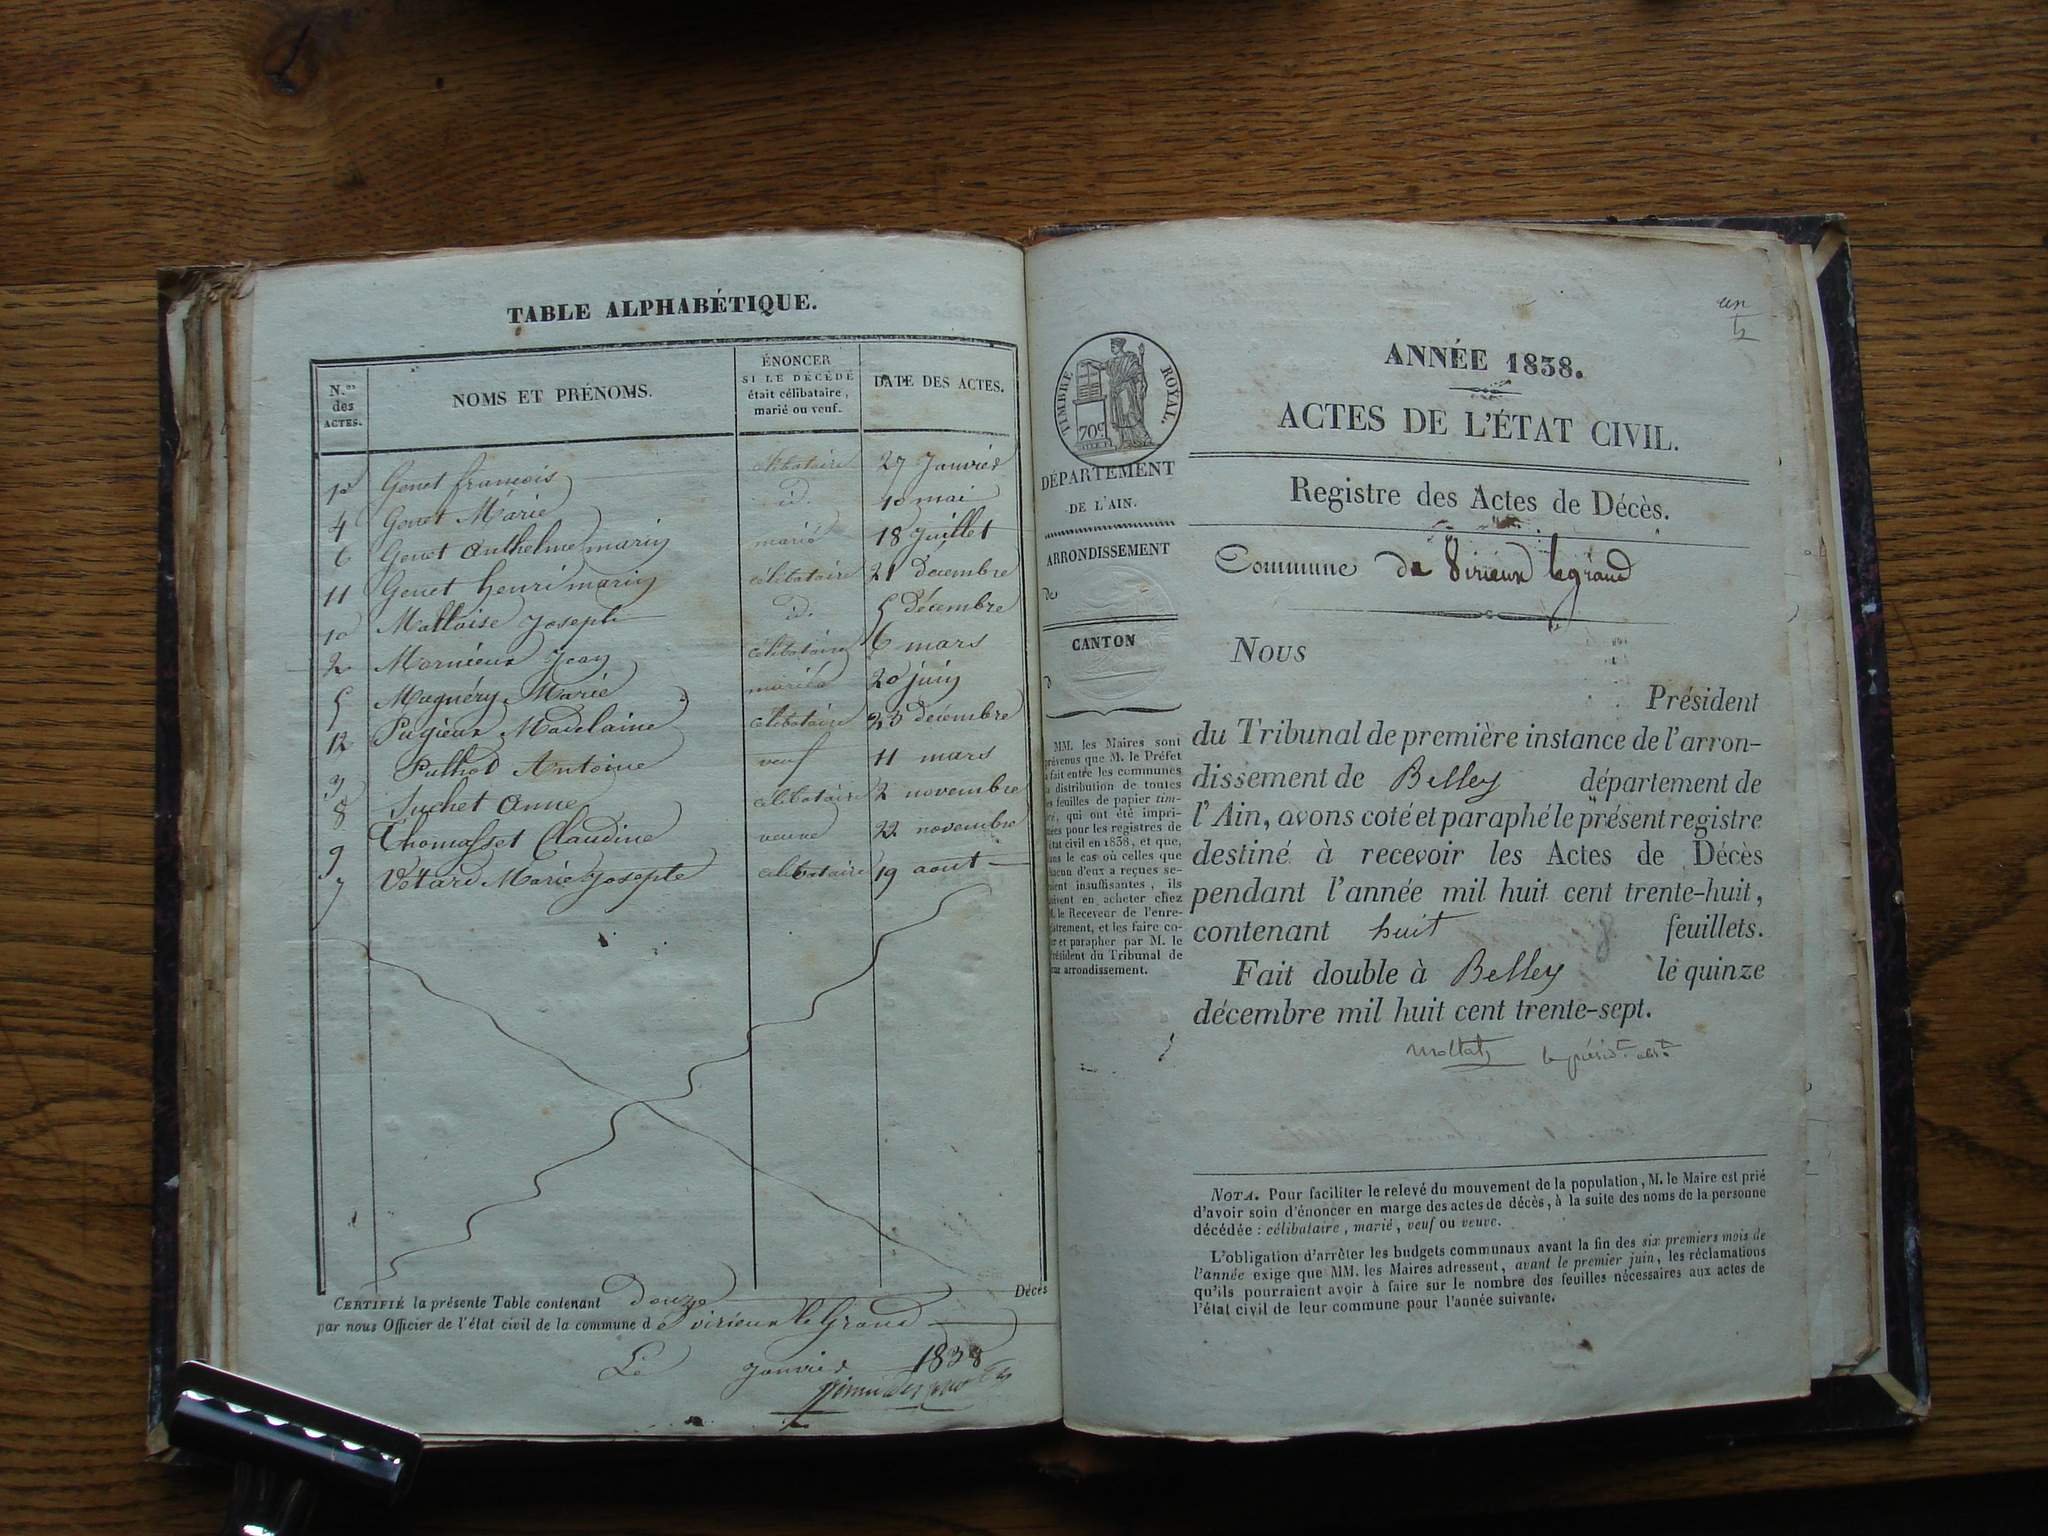 TABLE ALPHABÉTIQUE.
N.os des ACTES.
NOMS ET PRÉNOMS.
ÉNONCER
SI LE DÉCÉDÉ
était célibataire,
marié ou veuf.
DATE DES ACTES.
Genet françois célibataire 27 Janvier
4 Genet Marie id. 10 mai
6 Genet Anthelme marin marié 18 Juillet
11 Genet henri marin célibataire 21 decembre
10 Joseph id. 5 décembre
2 Jean célibataire 6 mars
5 Maguéry Marie 20 juin
12 Pugieux Madelaine célibataire 23 décembre
3 Antoine veuf 11 mars
8 Suchet Anne célibataire 2 novembre
9 Thomasset Claudine veuve 22 novembre
7 Vétard Marie Josephte célibataire 19 aout
Décès
CERTIFIÉ la présente Table contenant douze
par nous Officier de l'état civil de la commune de virieux le Grand
Le janvier 1838
un
TIMBRE ROYAL.
70c
DÉPARTEMENT
DE L'AIN.
ARRONDISSEMENT
de
CANTON
d
MM. les Maires sont
prévenus que M. le Préfet
a fait entre les communes
la distribution de toutes
les feuilles de papier tim-
bré, qui ont été impri-
mées pour les registres de
l'état civil en 1838, et que,
dans le cas où celles que
chacun d'eux a reçues se-
raient insuffisantes, ils
doivent en acheter chez
M. le Receveur de l'enre-
gistrement, et les faire co-
ter et parapher par M. le
Président du Tribunal de
leur arrondissement.
ANNÉE 1838.
ACTES DE L'ÉTAT CIVIL.
Registre des Actes de Décès.
Commune de Virieux legrand
Nous
Président
du Tribunal de première instance de l'arron-
dissement de Belley département de
l'Ain, avons coté et paraphé le présent registre
destiné à recevoir les Actes de Décès
pendant l'année mil huit cent trente-huit,
contenant huit feuillets.
Fait double à Belley le quinze
décembre mil huit cent trente-sept.
NOTA. Pour faciliter le relevé du mouvement de la population, M. le Maire est prié
d'avoir soin d'énoncer en marge des actes de décès, à la suite des noms de la personne
décédée : célibataire, marié, veuf ou veuve.
L'obligation d'arrêter les budgets communaux avant la fin des six premiers mois de
l'année exige que MM. les Maires adressent, avant le premier juin, les réclamations
qu'ils pourraient avoir à faire sur le nombre des feuilles nécessaires aux actes de
l'état civil de leur commune pour l'année suivante.